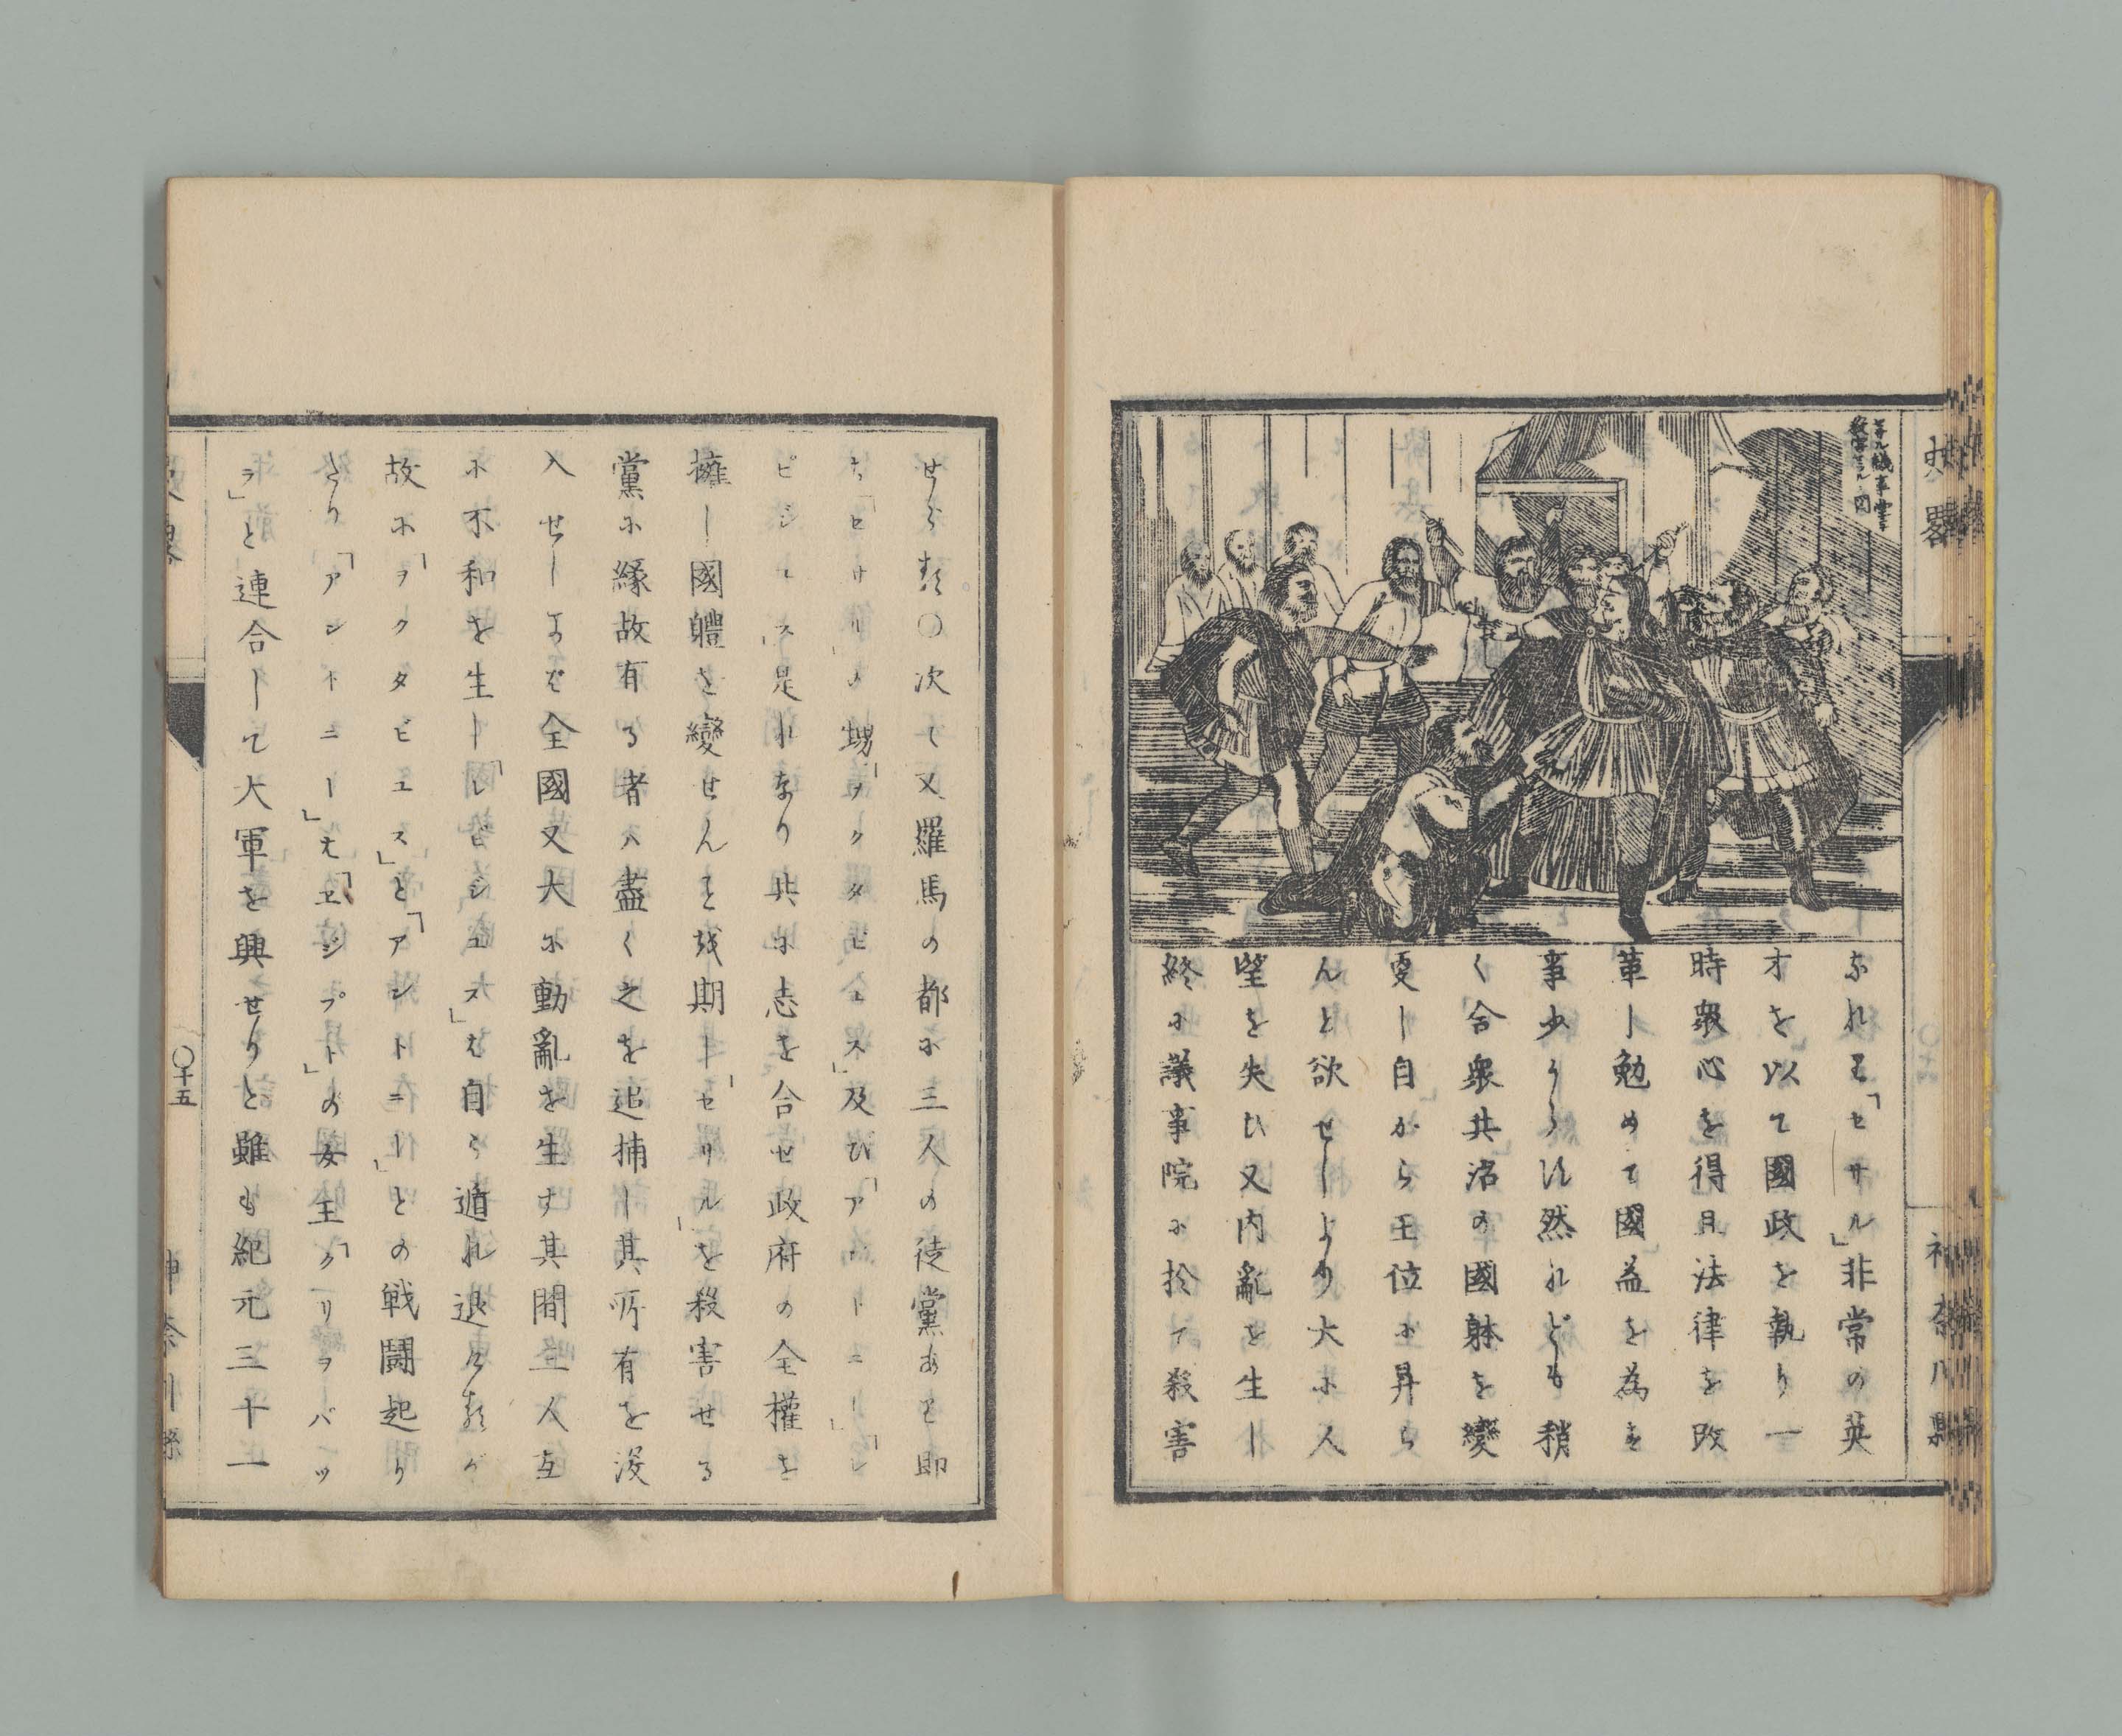 史略
神奈川縣
セサル議事堂ニ
殺害セラルヽ図
なれバ「セサル」非常の英
才を以て國政を執り一
時衆心を得且法律を改
革し勉めて國益を為す
事少からに然れども稍
く合衆共治の國躰を變
更し自から王位に昇ら
んと欲せしより大に人
望を失ひ又内亂を生し
終に議事院に於て殺害
せらる〇次て又羅馬の都に三人の徒黨あり即
ち「セサリ」の甥「ヲクタビユス」及び「アントニー」「レ
ピジユス」是れなり共に志を合せ政府の全權を
擁し國體を變せんと豫期し「セサル」を殺害せる
黨に縁故有る者ハ盡く之を追捕し其所有を没
入せしかバ全國又大に動亂を生す其間三人互
に不和を生し「レピジユス」は自ら遁れ退く
故に「ヲクタビユス」と「アントニー」との戦闘起り
たり「アントニー」は「エジプト」の女主「クリヲパツ
ラ」と連合して大軍を興せりと雖も紀元三十一
史畧
〇十五
神奈川縣